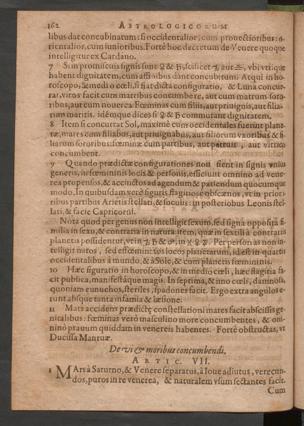 162 ASTROLOGICORUM
libus dat concubinatum: si occidentalior, cum provectioribus: o-
rientalior, cum iunioribus. Fortè hoc dictum de Venere quoque
intelligitur ex Cardano.
7 Sin promiscuis signis sunt ♀ & ♄, scilicet ♑ aut ♎, ubi utrique
habent dignitatem, cum affinibus dant concubitum. Atqui in ho-
roscopo, & medio cœli, si
viros facit cum matribus concumbere, aut cum matrum soro-
ribus, aut cum nouerca. Fœminas cum filiis, aut priuignis, aut filia-
rum maritis. idémque dicet si ♀ & ♄ commutant dignitatem.
8 Item si concurrat Sol, maximè cum occidentales fuerint plane-
tæ, mares cum filiabus, aut priuignabus, aut filiorum vxoribus &
liarum sororibus: fœminæ cum patribus, aut patruis, aut vitricis
concumbent.
9 Quando prædictæ configurationes non sient in signis eius
generis, in fœmininis locis & personis, efficiunt omnino ad vene-
rea propensos, & ad actus ad agendum & patiendum quocumque
modo. In quibusdam verò figuris, flagitiosos & obscœnos, vt in prio-
ribus partibus Arietis stellis, & succulis: in posterioribus Leonis stel-
lari, & facie Capricorni.
Nota quod per genus non intelligit sexum, sed signa opposita fa-
milia in sexu, & contraria in natura
planetis possidentur, vt in ♄ & in
telligit notos, sed
occidentalibus à mundo, & à Sole, & cum planetis fœmininis.
10 Hæc figuratio in horoscopo, & in medio cœli, hæc flagitia fa-
cit publica, manifestáque magis. In septima, & imo cœli, damnosos,
quoniam eunuchos, steriles, spadones facit. Ergo extra angulos e-
runt absque tanta infamia & læsione.
11 Mars accidens prædictæ constellationi mares facit abscissis ge-
nitalibus: fœminas verò masculino more concumbentes, & om-
nino prauum quiddam in venereis habentes. Fortè obstructas, vt
Ducissa Mantuæ.
De vi & moribus concumbendi.
ARTIC. VII.
1 MArs à Saturno, & Venere separatus, à Ioue adiutus, verecun-
dos, puros in re venerea, & naturalem vsum sectantes facit.
Cum